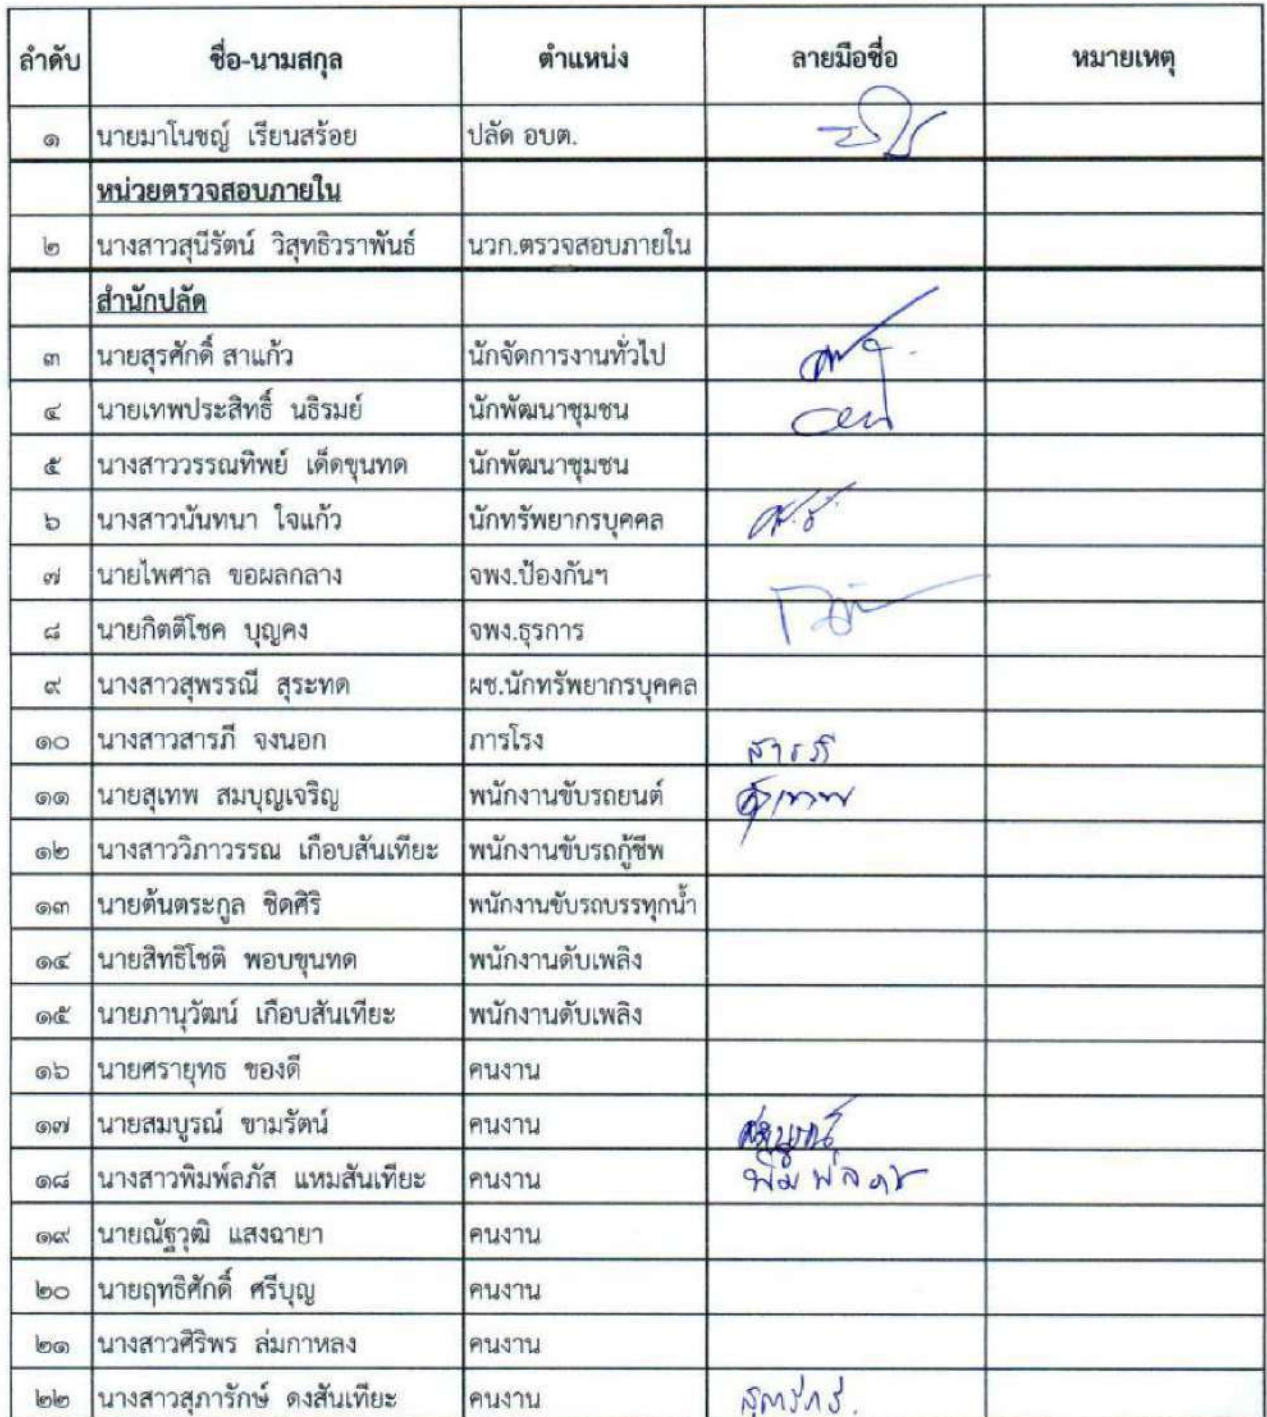 ลำดับ ชื่อ-นามสกุล ตำแหน่ง ลายมือชื่อ หมายเหตุ
๑ นายมาโนชญ์ เรียนสร้อย ปลัด อบต.
หน่วยตรวจสอบภายใน
๒ นางสาวสุนีรัตน์ วิสุทธิวราพันธ์ นวก.ตรวจสอบภายใน
สำนักปลัด
๓ นายสุรศักดิ์ สาแก้ว นักจัดการงานทั่วไป
๔ นายเทพประสิทธิ์ นธิรมย์ นักพัฒนาชุมชน
๕ นางสาววรรณทิพย์ เด็ดขุนทด นักพัฒนาชุมชน
๖ นางสาวนันทนา ใจแก้ว นักทรัพยากรบุคคล
๗ นายไพศาล ขอผลกลาง จพง.ป้องกันฯ
๘ นายกิตติโชค บุญคง จพง.ธุรการ
๙ นางสาวสุพรรณี สุระทด ผช.นักทรัพยากรบุคคล
๑๐ นางสาวสารภี จงนอก ภารโรง สารภี
๑๑ นายสุเทพ สมบุญเจริญ พนักงานขับรถยนต์
๑๒ นางสาววิภาวรรณ เกือบสันเทียะ พนักงานขับรถกู้ชีพ
๑๓ นายต้นตระกูล ชิดศิริ พนักงานขับรถบรรทุกน้ำ
๑๔ นายสิทธิโชติ พอบขุนทด พนักงานดับเพลิง
๑๕ นายภานุวัฒน์ เกือบสันเทียะ พนักงานดับเพลิง
๑๖ นายศรายุทธ ของดี คนงาน
๑๗ นายสมบูรณ์ ขามรัตน์ คนงาน สมบูรณ์
๑๘ นางสาวพิมพ์ลภัส แหมสันเทียะ คนงาน พิมพ์ลภัส
๑๙ นายณัฐวุฒิ แสงฉายา คนงาน
๒๐ นายฤทธิศักดิ์ ศรีบุญ คนงาน
๒๑ นางสาวศิริพร ล่มกาหลง คนงาน
๒๒ นางสาวสุภารักษ์ ดงสันเทียะ คนงาน สุภารักษ์